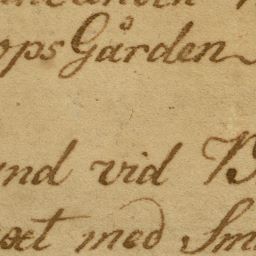 ops Gården
und vid
oet med Sm